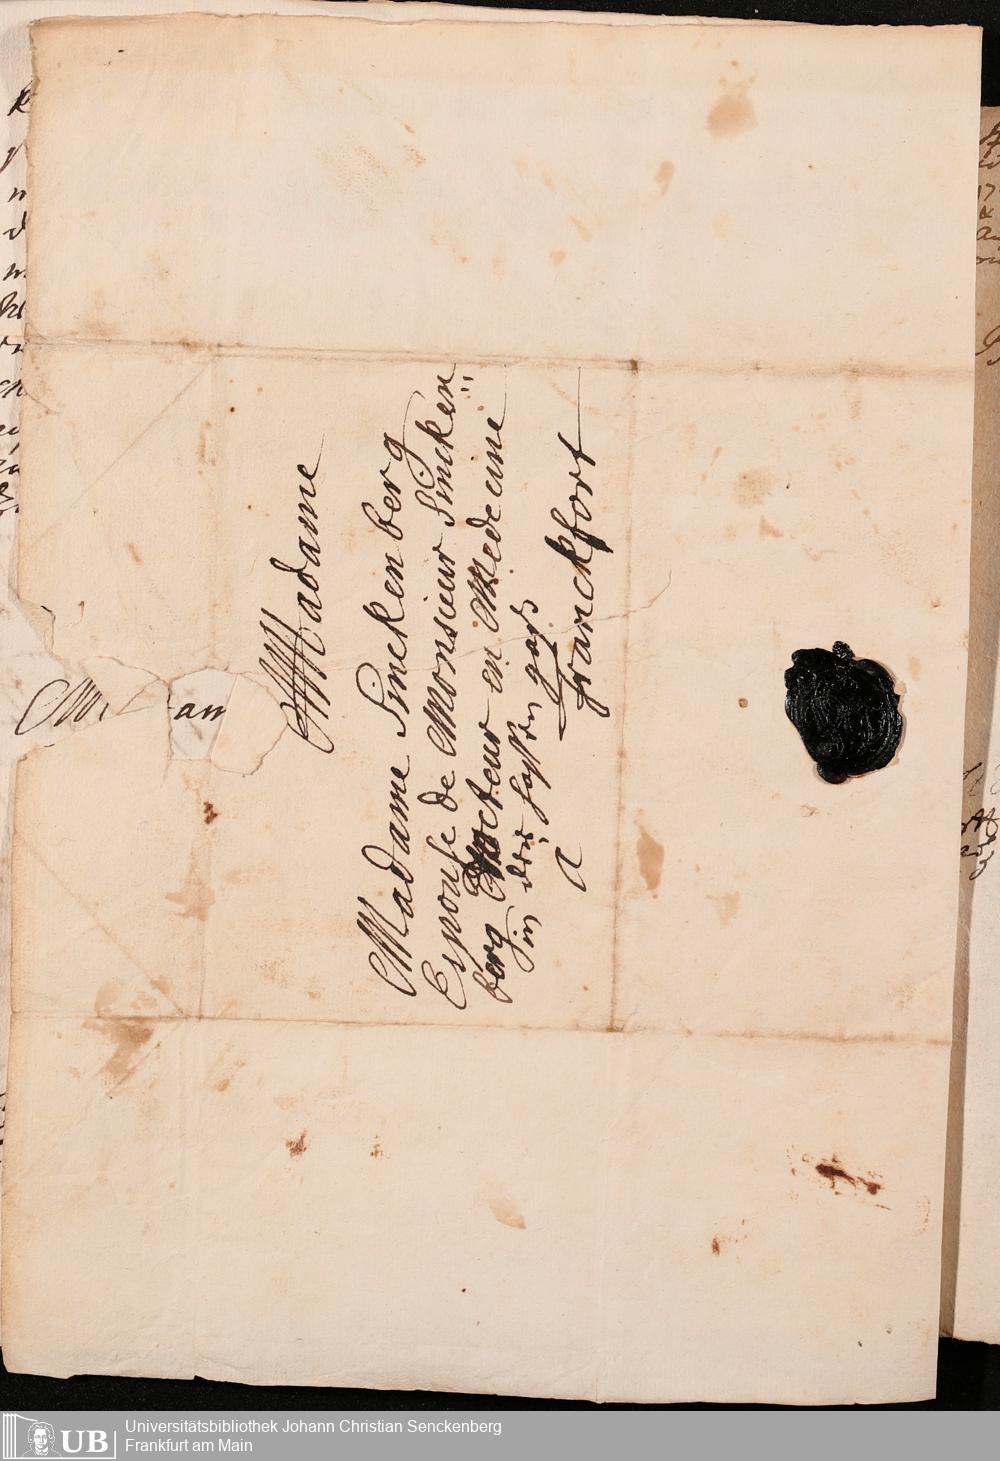 Madame
Madame Sinckenberg
Espouse de Monsieur Sincken=
berg Docteur en Medecine
in der Hassen gass
a franckfort
an
UB
Universitätsbibliothek Johann Christian Senckenberg
Frankfurt am Main